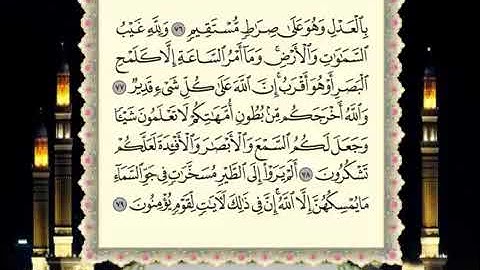 بِالْعَدْلِ وَهُوَ عَلَىٰ صِرَاطٍ مُّسْتَقِيمٍ ٧٦ وَلِلَّهِ غَيْبُ
السَّمَاوَاتِ وَالْأَرْضِ ۚ وَمَا أَمْرُ السَّاعَةِ إِلَّا كَلَمْحِ
الْبَصَرِ أَوْ هُوَ أَقْرَبُ ۚ إِنَّ اللَّهَ عَلَىٰ كُلِّ شَيْءٍ قَدِيرٌ ٧٧
وَاللَّهُ أَخْرَجَكُم مِّن بُطُونِ أُمَّهَاتِكُمْ لَا تَعْلَمُونَ شَيْئًا
وَجَعَلَ لَكُمُ السَّمْعَ وَالْأَبْصَارَ وَالْأَفْئِدَةَ ۙ لَعَلَّكُمْ
تَشْكُرُونَ ٧٨ أَلَمْ يَرَوْا إِلَى الطَّيْرِ مُسَخَّرَاتٍ فِي جَوِّ السَّمَاءِ
مَا يُمْسِكُهُنَّ إِلَّا اللَّهُ ۗ إِنَّ فِي ذَٰلِكَ لَآيَاتٍ لِّقَوْمٍ يُؤْمِنُونَ ٧٩